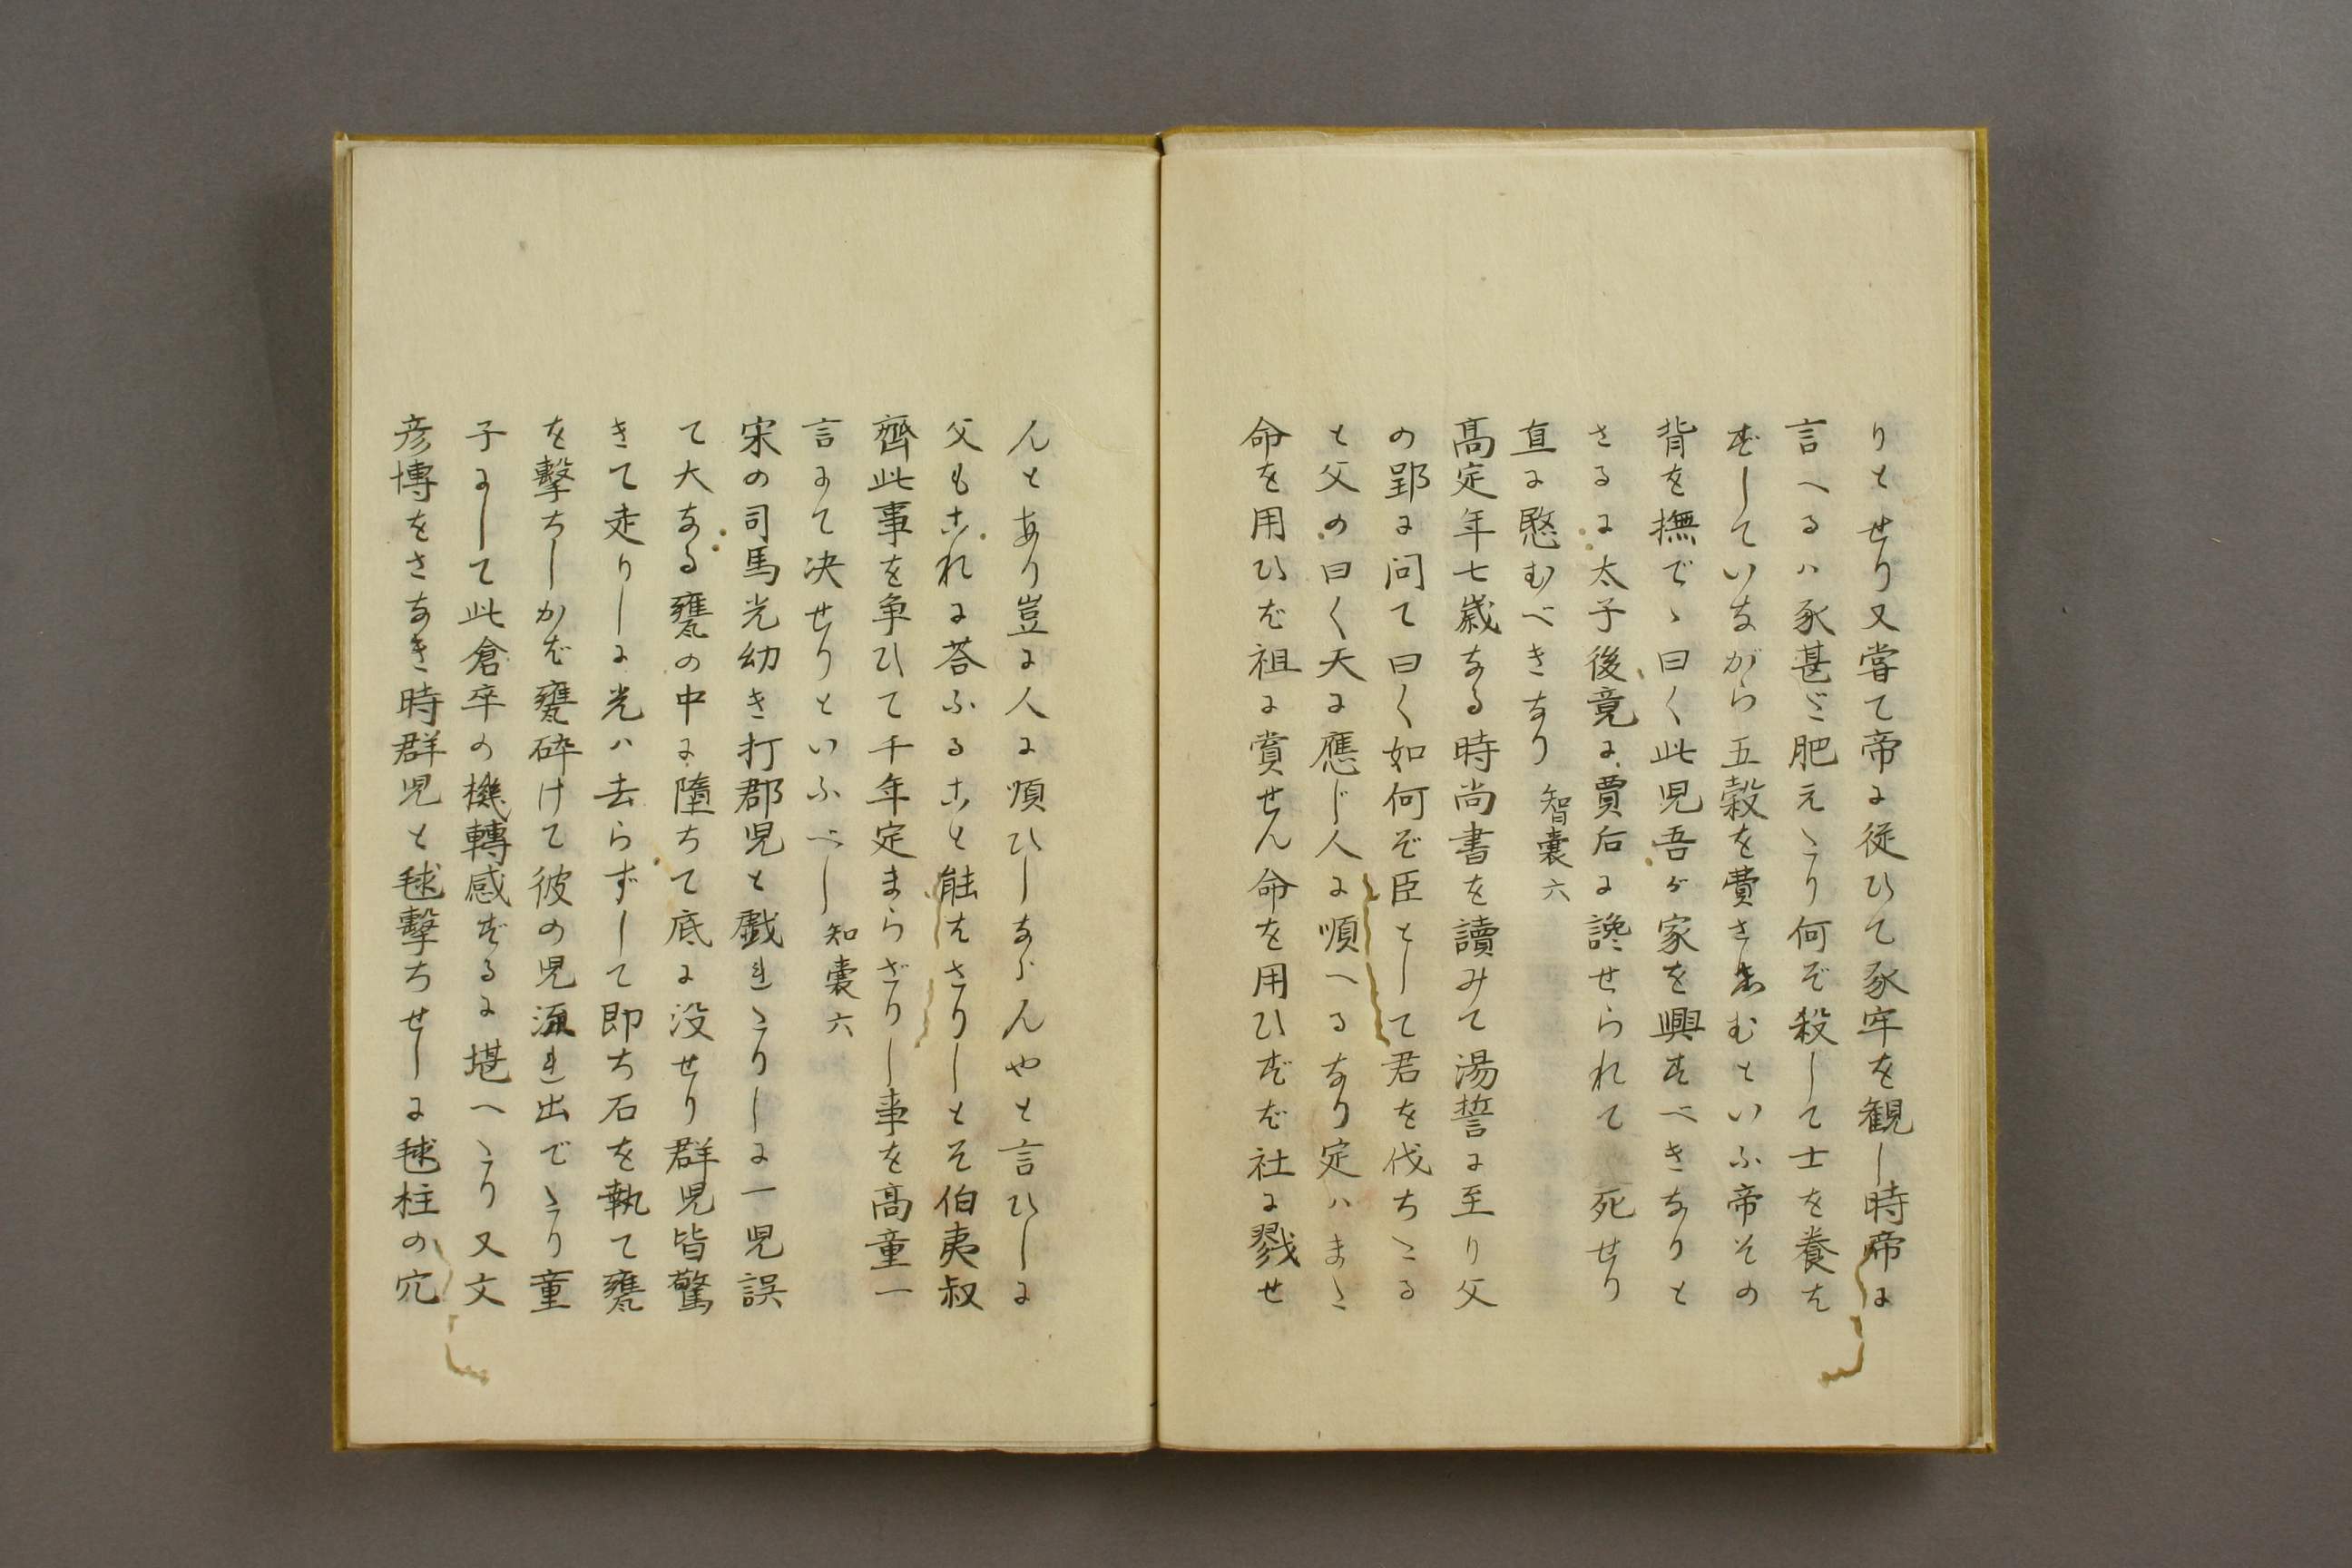 りとせり又嘗て帝に従ひて豕牢を観し時帝に
言へるハ豕甚ど肥えたり何ぞ殺して士を養は
ずしていながら五穀を費さしむといふ帝その
背を撫でゝ曰く此児吾が家を興すべきなりと
さるに太子後竟に賈后に讒せられて死せり
直に愍むべきなり 智囊六
髙定年七歳なる時尚書を讀みて湯誓に至り父
の郢に问て曰く如何ぞ臣として君を伐ちたる
と父の曰く天に應じ人に順へるなり定ハまた
命を用ひば祖に賞せん命を用ひずば社に戮せ
んとあり豈に人に順ひしならんやと言ひしに
父もこれに荅ふること能はさりしとそ伯夷叔
齊此事を争ひて千年定まらざりし事を髙童一
言にて决せりといふべし 知囊六
宋の司馬光幼き打郡児と戯れたりしに一児誤
て大なる甕の中に墮ちて底に没せり群児皆驚
きて走りしに光ハ去らずして即ち石を執て甕
を擊ちしかば甕砕けて彼の児流れ出でたり童
子にして此倉卒の機轉感ずるに堪へたり又文
彦博をさなき時群児と毬擊ちせしに毬柱の穴